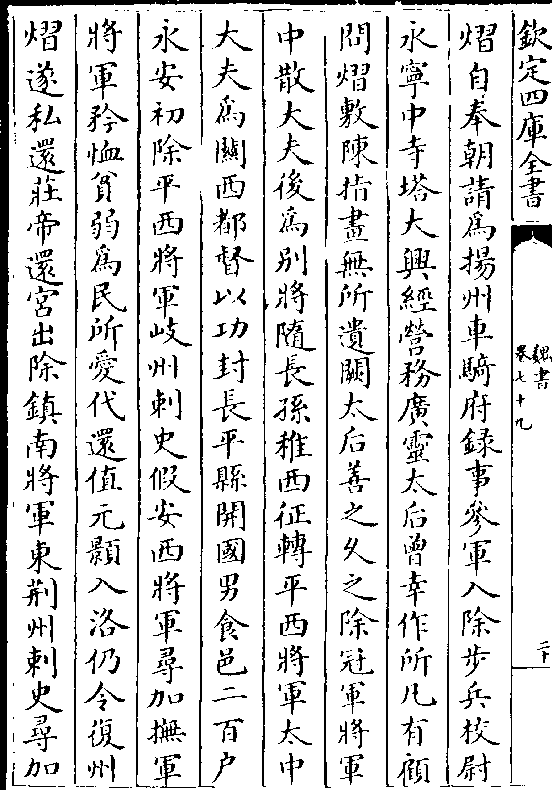 欽定四庫全書
魏書
卷七十九
熠自奉朝請爲揚州車騎府録事參軍入除步兵校尉
永寧中寺塔大興經營務廣靈太后曽幸作所凡有顧
問熠敷陳指畫無所遺闕太后善之久之除冠軍將軍
中散大夫後爲别將隨長孫稚西征轉平西將軍太中
大夫爲關西都督以功封長平縣開國男食邑二百户
永安初除平西將軍岐州刺史假安西將軍尋加撫軍
將軍矜恤貧弱爲民所愛代還值元顥入洛仍令復州
熠遂私還莊帝還宮出除鎮南將軍東荆州刺史尋加